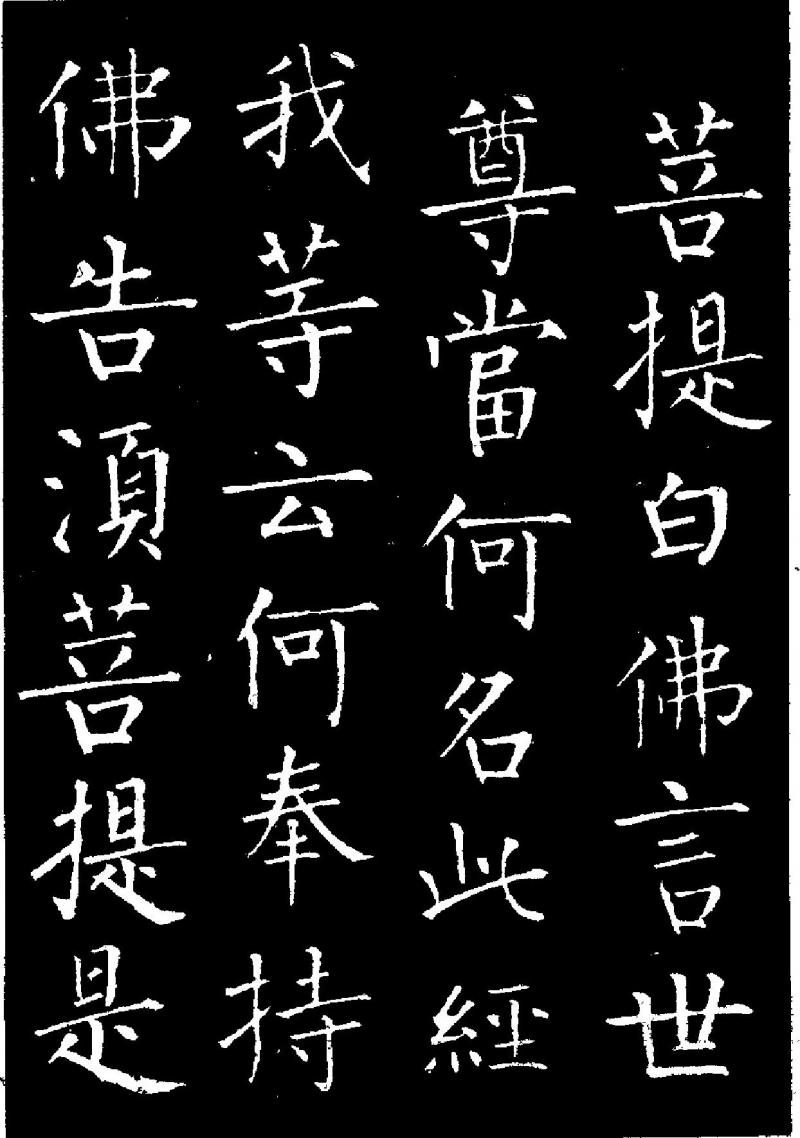 菩提白佛言世
尊當何名此經
我等云何奉持
佛告湏菩提是